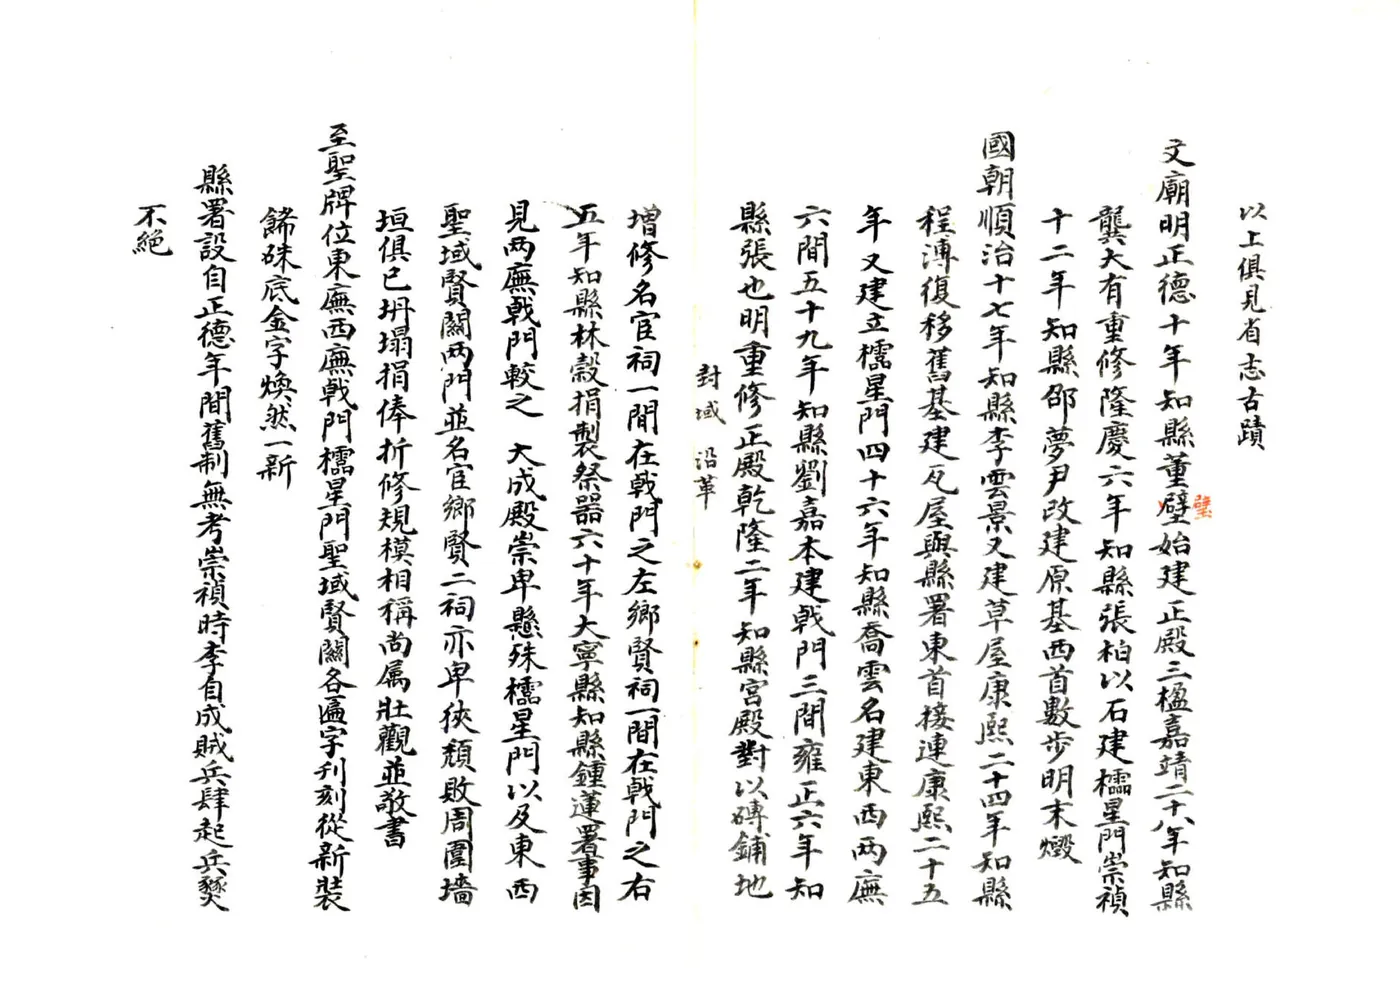 以上俱見省志古蹟
文廟明正德十年知縣董躄始建正殿三楹嘉靖二十八年知縣
璧
龔大有重修隆慶六年知縣張柏以石建櫺星門崇禎
十二年知縣邵夢尹改建原基西首數步明末燬
國朝順治十七年知縣李雲景又建草屋康熙二十四年知縣
程溥復移舊基建瓦屋與縣署東首接連康熙二十五
年又建立櫺星門四十六年知縣喬雲名建東西两廡
六間五十九年知縣劉嘉本建戟門三間雍正六年知
縣張也明重修正殿乾隆二年知縣宮殿對以磚鋪地
封域 沿革
增修名宦祠一間在戟門之左鄉賢祠一間在戟門之右
五年知縣林穀捐製祭器六十年大寧縣知縣鍾蓮署事因
見两廡戟門較之 大成殿崇卑懸殊櫺星門以及東西
聖域賢關两門並名宦鄉賢二祠亦卑狹頹敗周圍墻
垣俱已坍塌捐俸折修規模相稱尚属壯觀並敬書
至聖牌位東廡西廡戟門櫺星門聖域賢關各匾字刋刻從新裝
餙硃底金字煥然一新
縣署設自正德年間舊制無考崇禎時李自成賊兵肆起兵燹
不絕